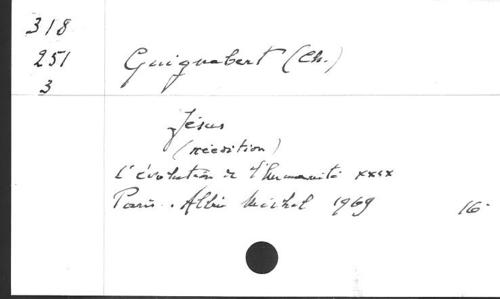 318
251
3
Guignebert (Ch.)
Jésus
(réédition)
L'évolution de l'Humanité XXIX
Paris. Albin Michel 1969 16